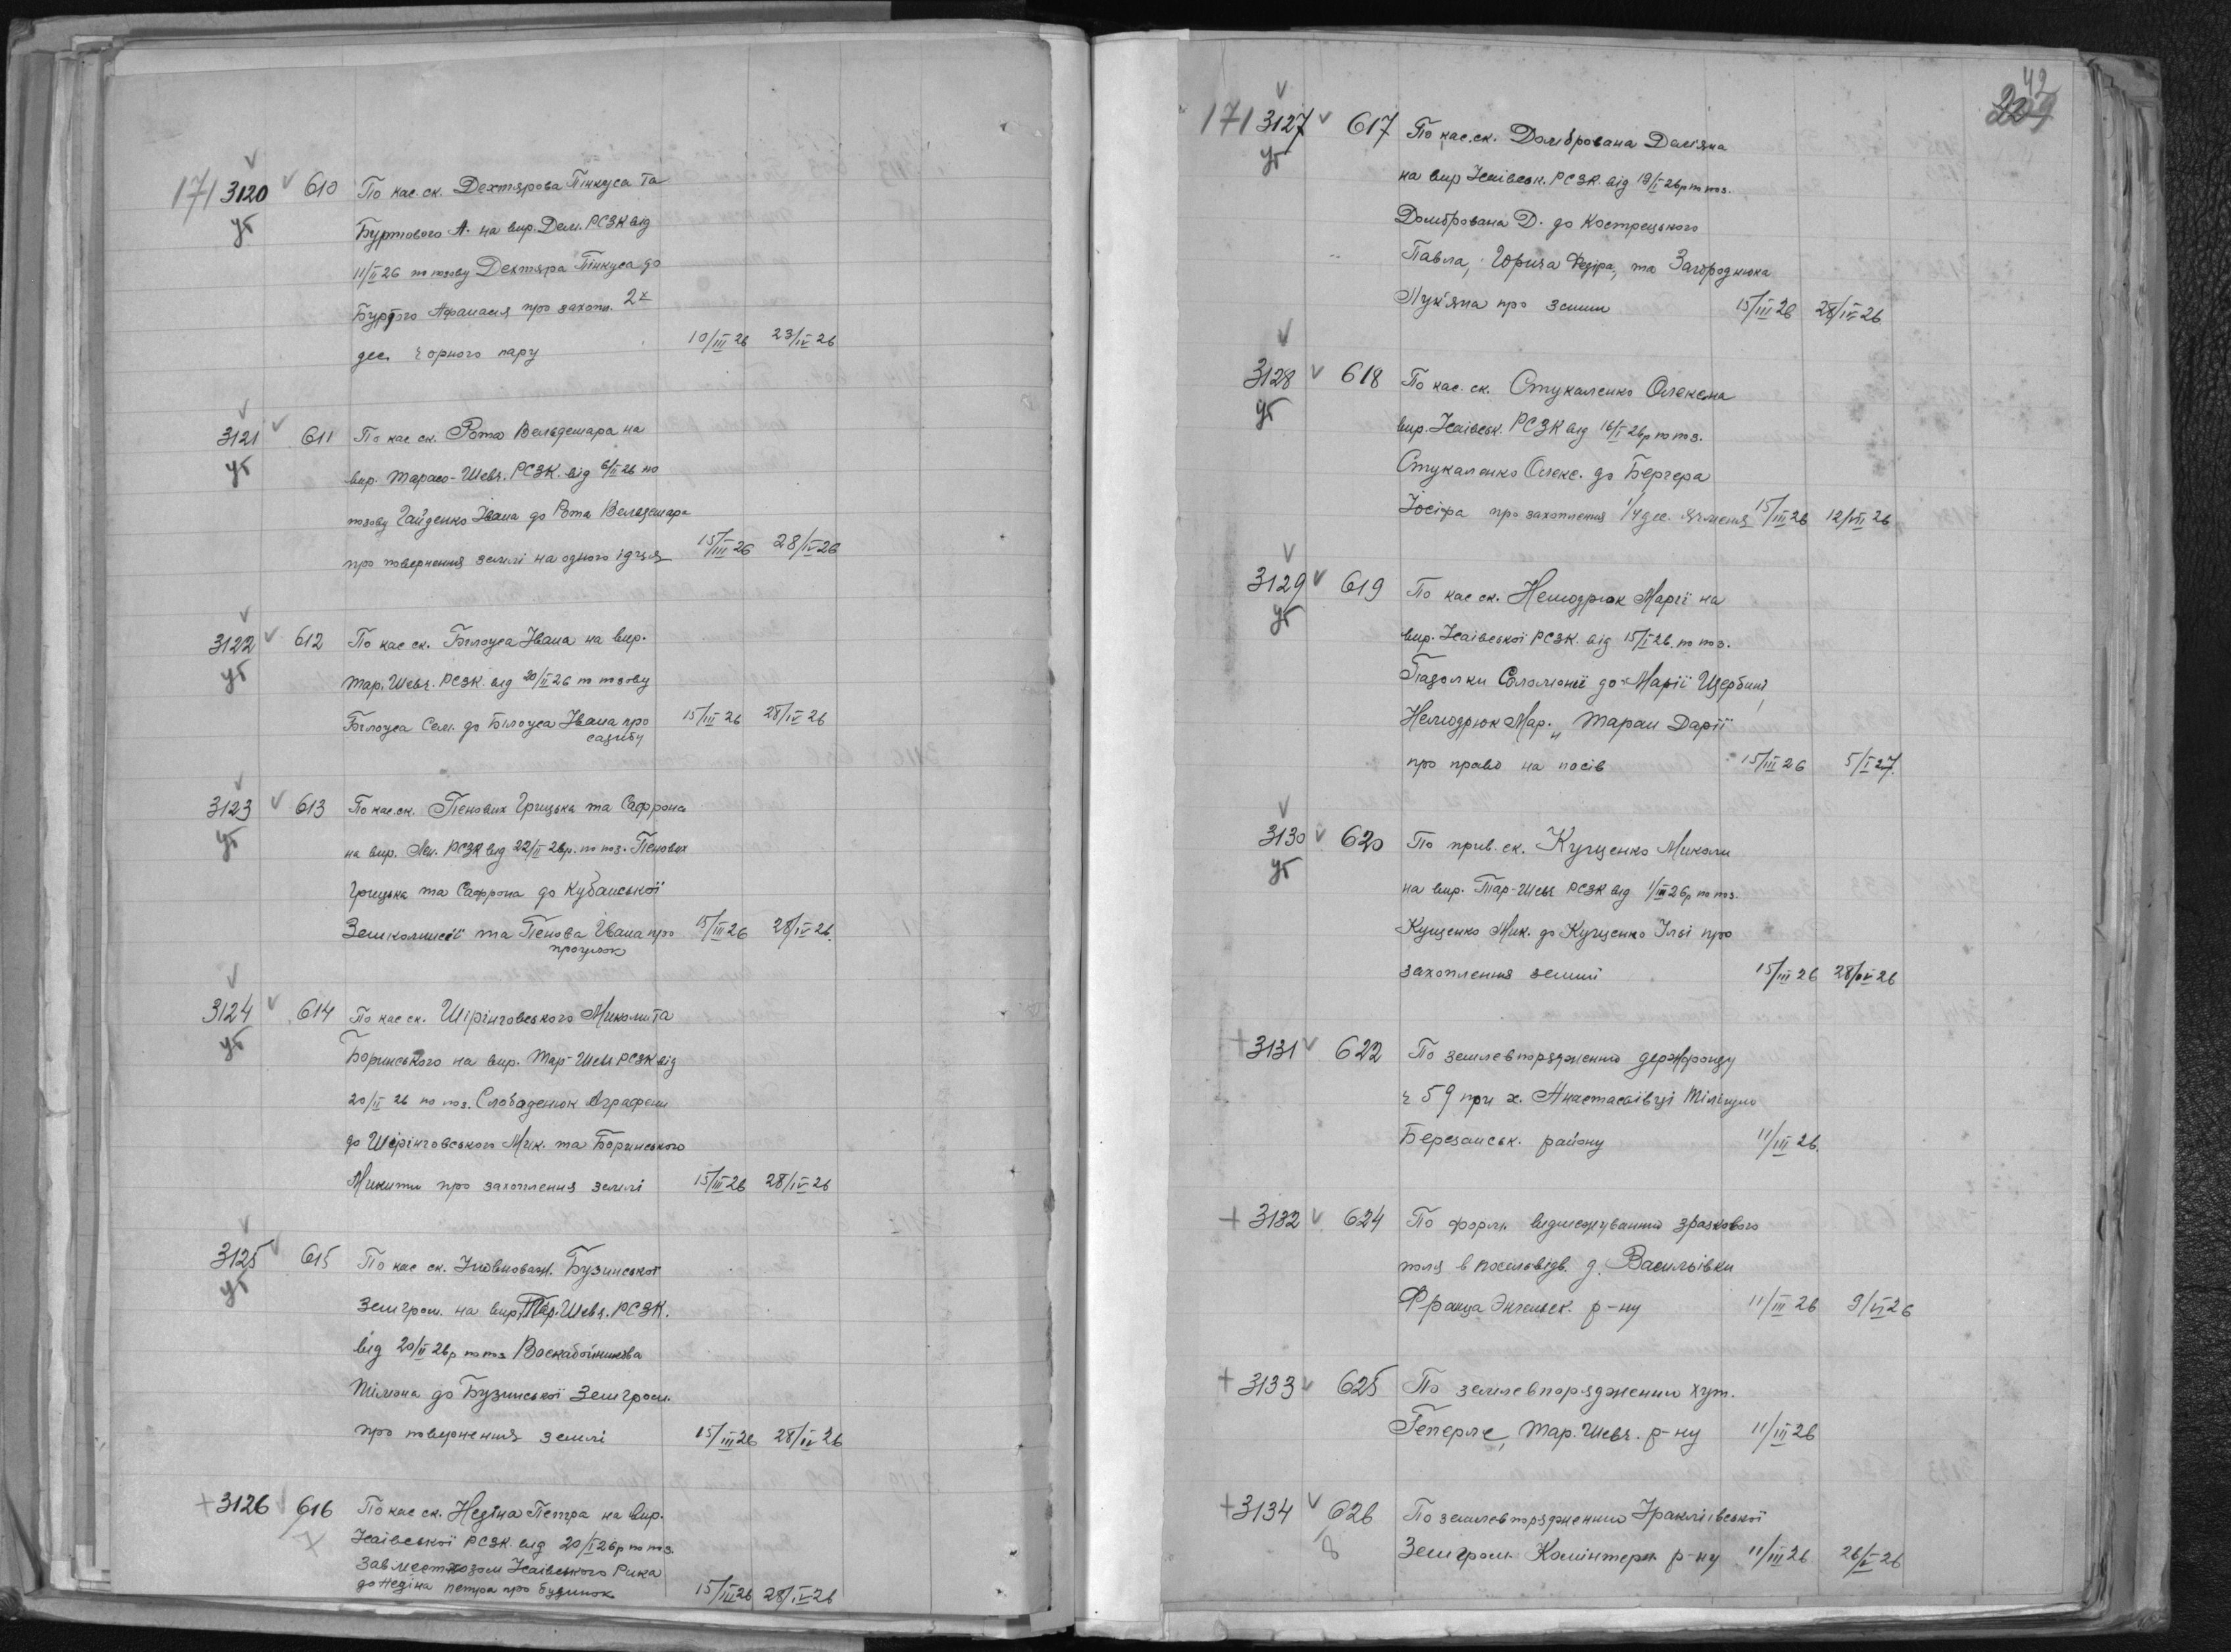 171 3120 610 По кас. ск. Дехтярова Пінкуса та
уб Буртового А. на вир. Дем. РСЗК від
11/II 26 по позову Дехтяра Пінкуса до
Буртого Афанасія про захопл. 2х
дес. чорного пару 10/III 26 23/IV 26
3121 611 По кас ск. Рота Вельдемара на
уб вир. Тарасо-Шевч. РСЗК. від 6/II 26 по
позову Гайденко Івана до Рота Вельдемара
про повернення землі на одного їдця 15/III 26 28/IV 26
3122 612 По кас ск. Білоуса Івана на вир.
уб Тар. Шевч. РСЗК. від 20/II 26 по позову
Білоуса Сем. до Білоуса Івана про 15/III 26 28/IV 26
садибу
3123 613 По кас. ск. Пенових Грицька та Сафрона
уб на вир. Лен. РСЗК від 22/II 26р. по поз. Пенових
Грицька та Сафрона до Кубанської
Земкомисії та Пенова Івана про 15/III 26 28/IV 26.
проулок
3124 614 По кас ск. Шірінговського Миколи та
уб Боринського на вир. Тар-Шевч РСЗК від
20/II 26 по поз. Слободенюк Аграфени
до Шірінговського Мик. та Боринського
Микити про захоплення землі 15/III 26 28/IV 26
3125 615 По кас ск. Уповноваж. Бузинської
уб Земгром. на вир. Тар. Шевч. РСЗК.
від 20/II 26р по поз Воскабойникова
Тімона до Бузинської Земгром.
про повернення землі 15/III 26 28/IV 26
+ 3126 616 По кас ск. Недіна Петра на вир.
Ісаівської РСЗК. від 20/I 26р по поз.
Завместхозом Ісаівського Рика
до Недіна Петра про будинок 15/III 26 28/IV 26
42
171 3127 617 По кас. ск. Домброва́на Дем'яна
уб на вир Ісаівськ. РСЗК. від 19/I 26р по поз.
Домбрована Д. до Кострецького
Павла, Юриза Федіра, та Загороднюка
Лук'яна про землю 15/III 26 28/IV 26.
3128 618 По кас. ск. Стукаленко Олексна
уб вир. Ісаівськ. РСЗК від 16/I 26р по поз.
Стукаленко Олекс. до Бергера
Іосіфа про захоплення 1/4 дес. ячменя 15/III 26 12/VII 26
3129 619 По кас ск. Немодрюк Марії на
уб вир. Ісаівської РСЗК. від 15/I 26. по поз.
Падолки Соломонії до Марії Щербини,
Немодрюк Мар., Таран Дарії
про право на посів 15/III 26 5/I 27.
3130 620 По прив. ск. Кущенко Миколи
уб на вир. Тар-Шевч РСЗК від 1/III 26р по поз.
Кущенко Мик. до Кущенко Ільі про
захоплення землі 15/III 26 28/IV 26
+ 3131 622 По землевпорядженню держфонду
ч 59 при х. Анастасівці Тілігуло
Березанськ. району 11/III 26.
+ 3132 624 По форм. відмежуванню зразкового
поля в посільвідв. д. Васильівки
Франца Энгельск. р-ну 11/III 26 9/VI 26
+ 3133 625 По землевпорядженню хут.
Геперле, Тар. Шевч. р-ну 11/III 26
+ 3134 626 По землевпорядженню Іракліівської
8 Земгром. Комінтерн. р-ну 11/III 26 26/V 26